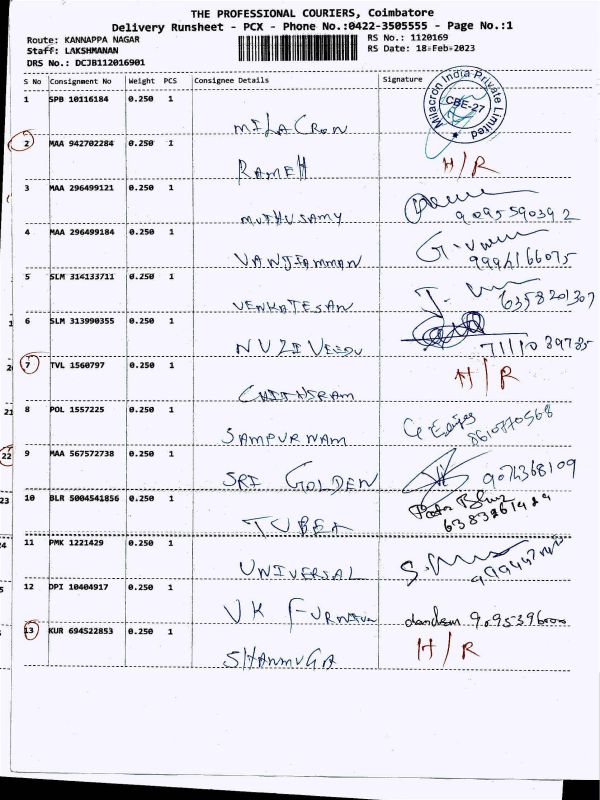 THE PROFESSIONAL COURIERS, Coimbatore
Delivery Runsheet - PCX - Phone No.:0422-3505555 - Page No.:1
Route: KANNAPPA NAGAR
RS No.: 1120169
Staff: LAKSHMANAN
RS Date: 18-Feb-2023
DRS No.: DCJB112016901
S No Consignment No Weight PCS Consignee Details Signature
1 SPB 10116184 0.250 1 MILACRON Milacron India Private Limited CBE-27
2 MAA 942702284 0.250 1 RAMEH H/R
3 MAA 296499121 0.250 1 MUTHUSAMY 9095590392
4 MAA 296499184 0.250 1 VANJIAMMAN 9994166075
5 SLM 314133711 0.250 1 VENKATESAN 6358201307
6 SLM 313990355 0.250 1 NUZIVEEDU
7 TVL 1560797 0.250 1 H/R
8 POL 1557225 0.250 1 SAMPURNAM 8610770568
9 MAA 567572738 0.250 1 SRI GOLDEN 9074368109
10 BLR 5004541856 0.250 1 TUBEX
11 PMK 1221429 0.250 1 UNIVERSAL
12 DPI 10404917 0.250 1 VK
13 KUR 694522853 0.250 1 SHANMUGA H/R
22
23